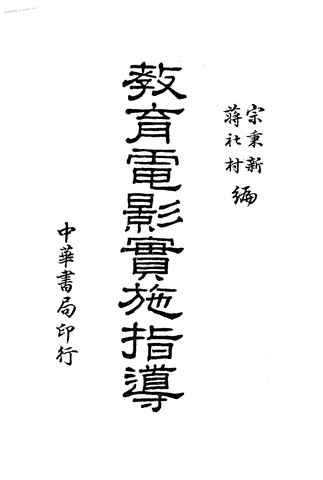 宗秉新
蔣社村
編
教育電影實施指導
中華書局印行